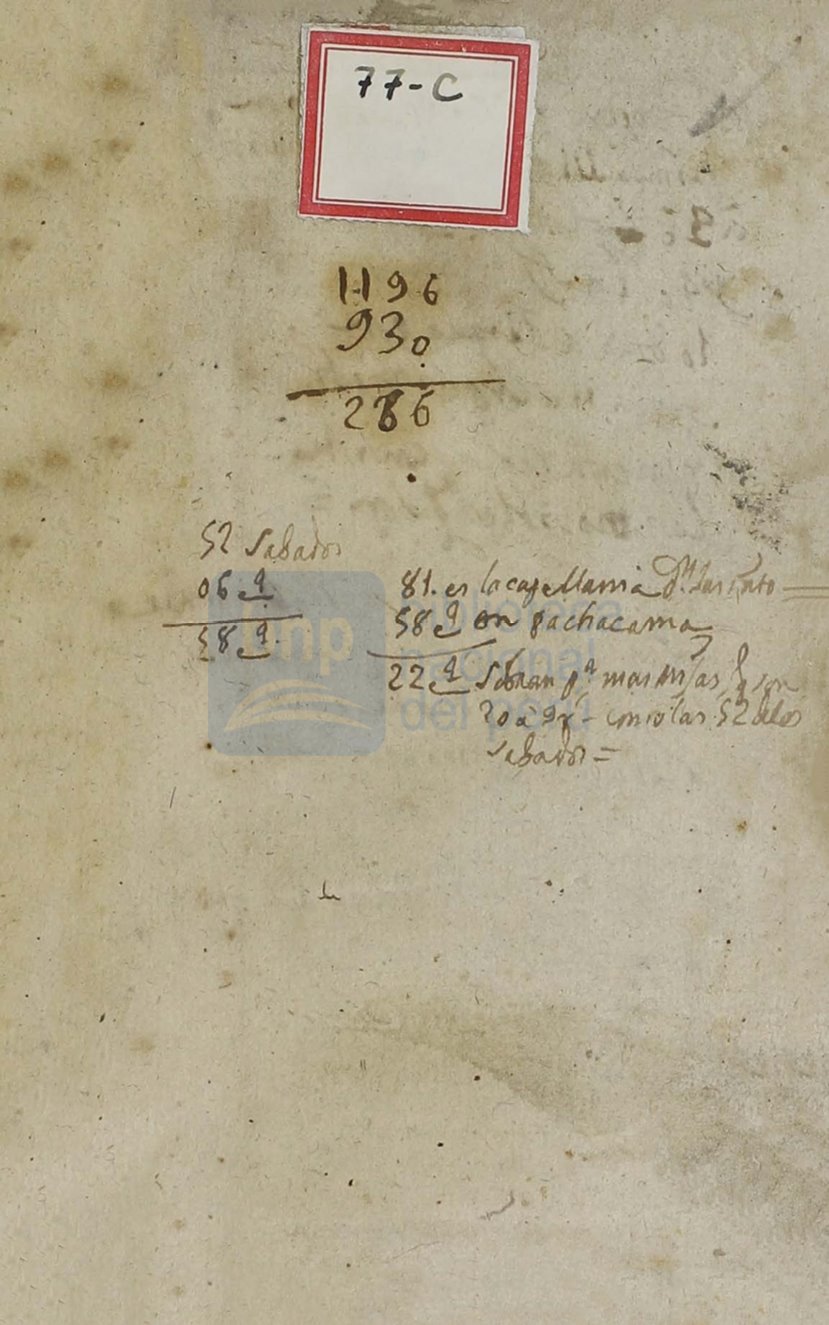 77-C
1196
930
286
52 Sabados
06 q
58 q
81. es la capellania
58 q en pachacama
22 q Sobran pa mas misas
20 a 9r - como las 52 de los
Sabados =
bnp biblioteca
nacional
del perú